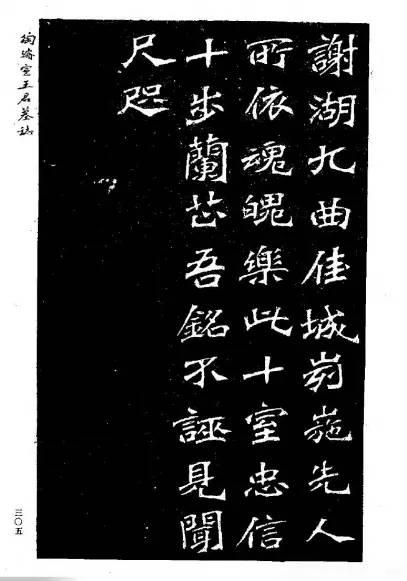 謝湖九曲佳城峛崺先人
所依魂魄樂此十室忠信
十步蘭芷吾銘不誣見聞
尺咫
陶濬宣王君墓誌
三〇五